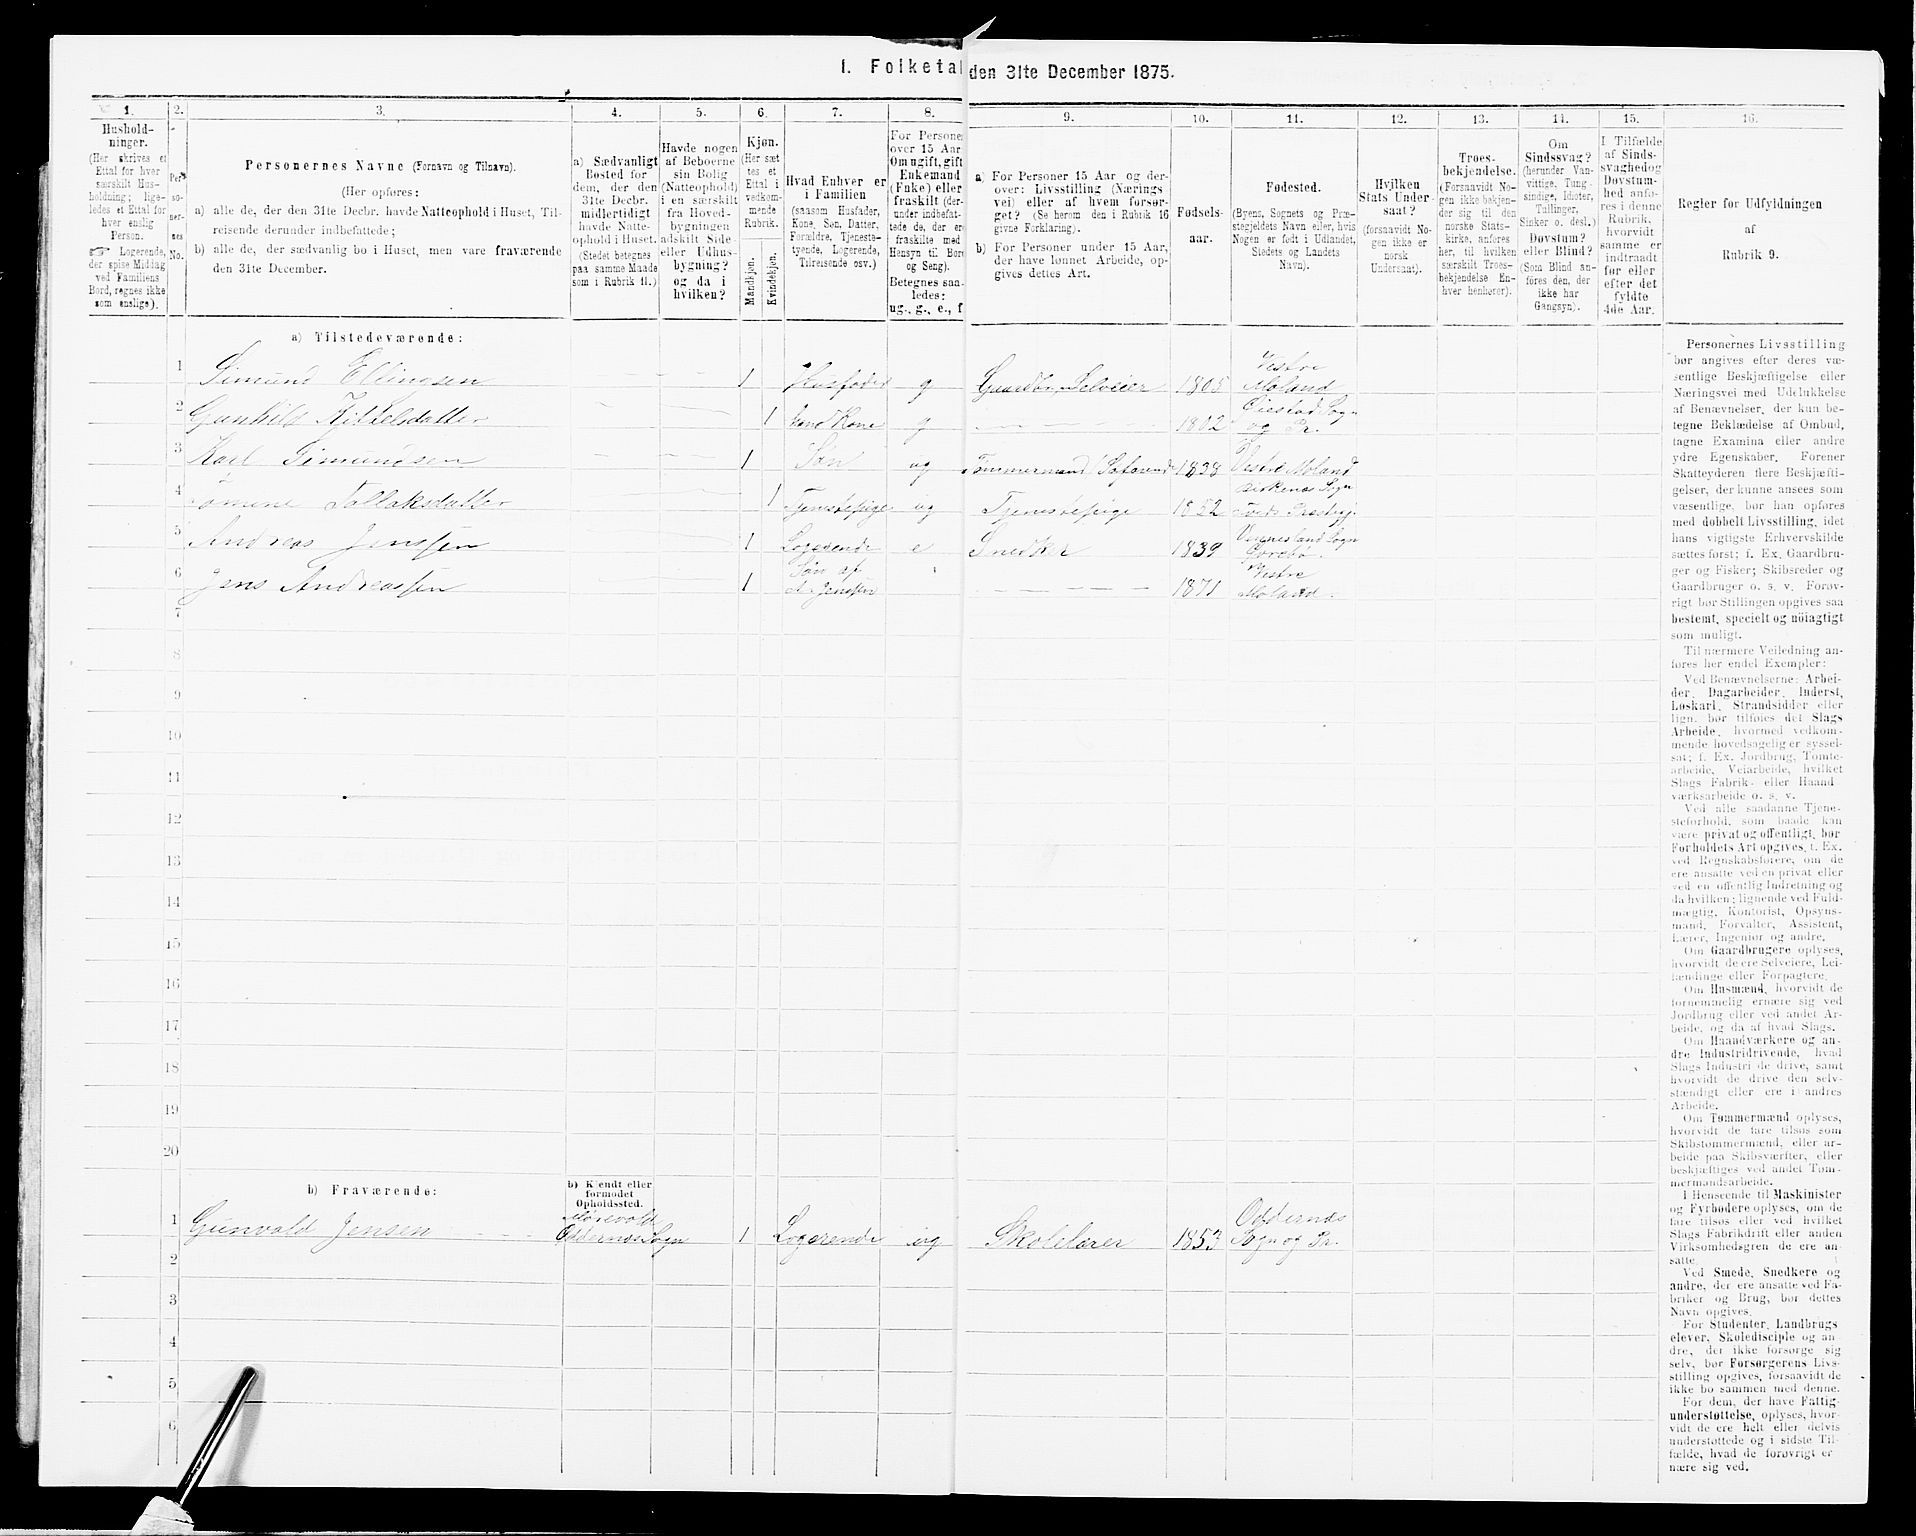 1. Folketal den 31te December 1875.
1. 2. 3. 4. 5. 6. 7. 8. 9. 10. 11. 12. 13. 14. 15. 16.
Hushold-
ninger.
(Her skrives et
Ettal for hver
særskilt Hus-
holdning; lige-
ledes et Ettal for
hver enslig
Person.
☞ Logerende,
der spise Middag
ved Familiens
Bord, regnes ikke
som enslige).
Per-
so-
ner-
nes
No.
Personernes Navne (Fornavn og Tilnavn).
(Her opføres:
a) alle de, der den 31te Decbr. havde Natteophold i Huset, Til-
reisende derunder indbefattede;
b) alle de, der sædvanlig bo i Huset, men vare fraværende
den 31te December.
a) Sædvanligt
Bosted for
dem, der den
31te Decbr.
midlertidigt
havde Natte-
ophold i Huset.
(Stedet betegnes
paa samme Maade
som i Rubrik 11.)
Havde nogen
af Beboerne
sin Bolig
(Natteophold)
i en særskilt
fra Hoved-
bygningen
adskilt Side-
eller Udhus-
bygning?
og da i
hvilken?
Kjøn.
(Her sæt
tes et
Ettal i
vedkom-
mende
Rubrik.
Mandkjøn.
Kvindekjøn.
Hvad Enhver er
i Familien
(saasom Husfader,
Kone, Søn, Datter,
Forældre, Tjeneste-
tyende, Logerende,
Tilreisende osv.)
For Persone
over 15 Aar
Om ugift, gift
Enkemand
(Enke) eller
fraskilt (der-
under indbefat-
tede de, der er
fraskilte med
Hensyn til Bord
og Seng).
Betegnes saa-
ledes:
ug., g., e., f
a) For Personer 15 Aar og der-
over: Livsstilling (Nærings
vei) eller af hvem forsør-
get? (Se herom den i Rubrik 16
givne Forklaring).
b) For Personer under 15 Aar,
der have lønnet Arbeide, op-
gives dettes Art.
Fødsels-
aar.
Fødested.
(Byens, Sognets og Præ-
stegjeldets Navn eller, hvis
Nogen er født i Udlandet,
Stedets og Landets
Navn).
Hvilken
Stats Under-
saat?
(forsaavidt No-
gen ikke er
norsk
Undersaat).
Troes-
bekjendelse.
(Forsaavidt No-
gen ikke bekjen-
der sig til den
norske Stats-
kirke, anføres
her, til hvilken
særskilt Troes-
bekjendelse En-
hver henhører).
Om
Sindssvag?
(herunder Van-
vittige, Tung-
sindige, Idioter,
Tullinger,
Sinker o. desl.)
Døvstum?
eller Blind?
(Som Blind an-
føres den, der
ikke har
Gangsyn).
I Tilfælde
af Sinds-
svaghed og
Døvstum-
hed anfø-
res i denne
Rubrik,
hvorvidt
samme er
indtraadt
før eller
efter det
fyldte
4de Aar.
Regler for Udfyldningen
af
Rubrik 9.
a) Tilstedeværende:
1 Simund Ellingsen 1 Husfader g Gaardbr. Selveier 1805 Vestre Moland
2 Gunhild Kittelsdatter 1 hans Kone g 1802 Øiestad Sogn og Pr.
3 Karl Simundsen 1 Søn ug Tømmermand Søfarende 1838 Vestre Moland
4 Tomine Tollaksdatter 1 Tjenestepige ug Tjenestepige 1852 Birkenæs Sogn
5 Andreas Jenssen 1 Logerende e Snedker 1839 Vennesland Sogn
6 Jens Andreassen 1 Søn af A. Jenssen 1871 Vestre Moland.
7
8
9
10
11
12
13
14
15
16
17
18
19
20
b) Fraværende:
b) Kjendt eller
formodet
Opholdssted.
1 Gunvald Jensen Oddernæs Sogn 1 Logerende ug Skolelærer 1853 Oddernæs Sogn og Pr.
2
3
4
5
6
Personernes Livsstilling
bør angives efter deres væ-
sentlige Beskjæftigelse eller
Næringsvei med Udelukkelse
af Benævnelser, der kun be-
tegne Beklædelse af Ombud,
tagne Examina eller andre
ydre Egenskaber. Forener
Skatteyderen flere Beskjæfti-
gelser, der kunne ansees som
væsentlige, bør han opføres
med dobbelt Livsstilling, idet
hans vigtigste Erhvervskilde
sættes først; f. Ex. Gaardbru-
ger og Fisker; Skibsreder og
Gaardbruger o. s. v. Forøv-
rigt bør Stillingen opgives saa
bestemt, specielt og nöiagtigt
som muligt.
Til nærmere Veiledning an-
føres her endel Exempler:
Ved Benævnelserne: Arbei-
der, Dagarbeider, Inderst,
Løskarl, Strandsidder eller
lign. bør tilføies det Slags
Arbeide, hvormed vedkom-
mende hovedsagelig er syssel-
sat; f. Ex. Jordbrug, Tomte-
arbeide, Veiarbeide, hvilket
Slags Fabrik- eller Haand
værksarbeide o. s. v.
Ved alle saadanne Tjene-
steforhold, som baade kan
være privat og offentligt, bør
Forholdets Art opgives, f. Ex.
ved Regnskabsførere, om de
ere ansatte ved en privat eller
ved en offentlig Indretning og
da hvilken; lignende ved Fuld-
mægtig, Kontorist, Opsyns-
mand, Forvalter, Assistent,
Lærer, Ingeniør og andre.
Om Gaardbrugere oplyses,
hvorvidt de ere Selveiere, Lei-
lændinge eller Forpagtere.
Om Husmænd, hvorvidt de
fornemmelig ernære sig ved
Jordbrug eller ved andet Ar-
beide, og da af hvad Slags.
Om Haandværkere og an-
dre Industridrivende, hvad
Slags Industri de drive, samt
hvorvidt de drive den selv-
stændigt eller ere i andres
Arbeide.
Om Tømmermænd oplyses,
hvorvidt de fare tilsøs som
Skibstømmermænd, eller ar-
beide paa Skibsværfter, eller
beskjæftiges ved andet Tøm-
mermandsarbeide.
I Henseende til Maskinister
og Fyrbødere oplyses, om de
fare tilsøs eller ved hvilket
Slags Fabrikdrift eller anden
Virksomhedsgren de ere an-
satte.
Ved Smede, Snedkere og
andre, der ere ansatte ved Fa-
briker og Brug, bør dettes
Navn opgives.
For Studenter, Landbrugs
elever, Skoledisciple og an-
dre, der ikke forsørge sig
selv, bør Forsørgerens Livs-
stilling opgives, forsaavidt de
ikke bo sammen med denne.
For dem, der have Fattig-
understøttelse, oplyses, hvor-
vidt de ere helt eller delvis
understøttede og i sidste Til-
fælde, hvad de forøvrigt er
nære sig ved.